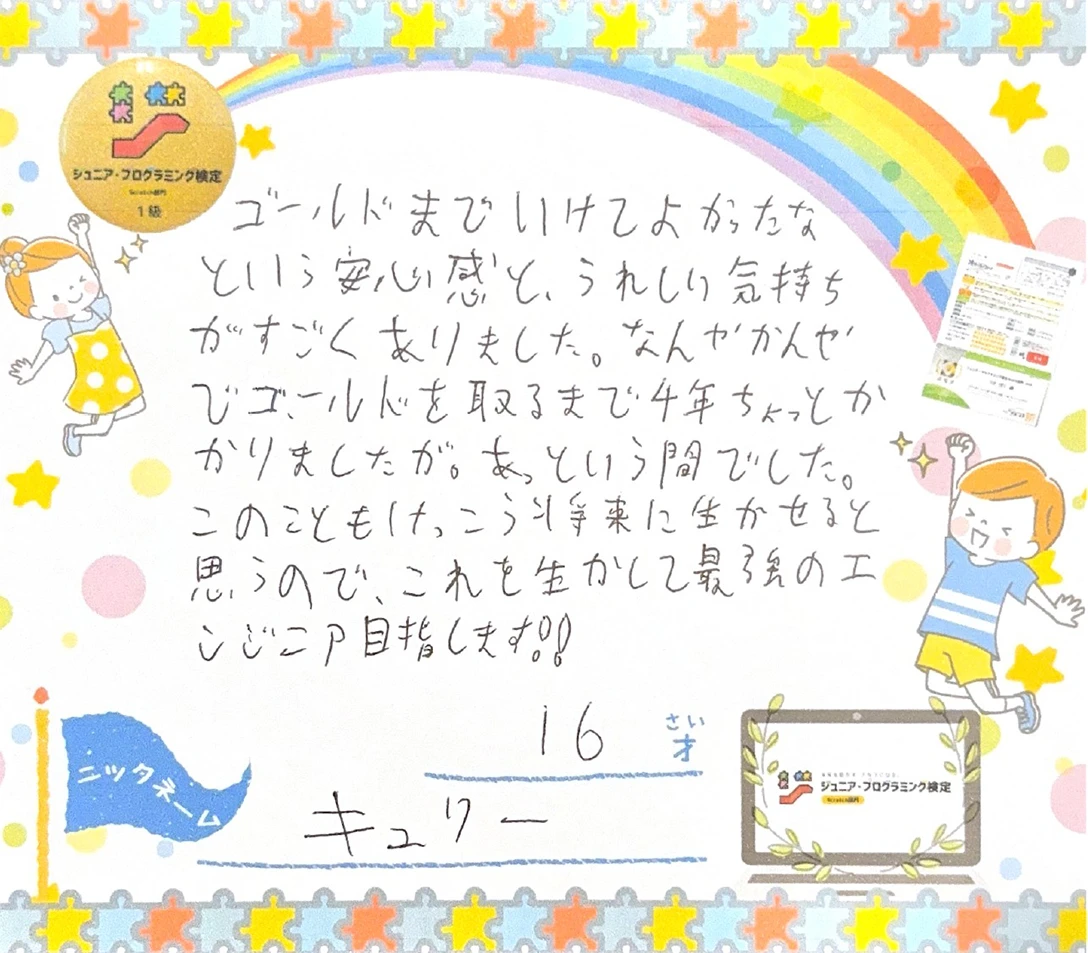 ジュニア・プログラミング検定
Scratch部門
1級
ゴールドまでいけてよかったな
という安心感と、うれしい気持ち
がすごくありました。なんやかんや
でゴールドを取るまで4年ちょっとか
かりましたが。あっという間でした。
このこともけっこう将来に生かせると
思うので、これを生かして最強のエ
ンジニア目指します!!
16 さい
才
ニックネーム
キュリー
ジュニア・プログラミング検定
Scratch部門